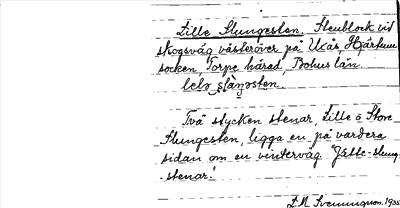 Lille Slungesten. Stenblock vid
skogsväg västeröver på Uxås, Hjärtum
socken, Torpe härad, Bohus län.
lelə slåŋəstən.
Två stycken stenar, Lille o Store
Slungesten, ligga en på vardera
sidan om en vinterväg "Jätte-slung-
-stenar."
S.N. Svenungson. 1935